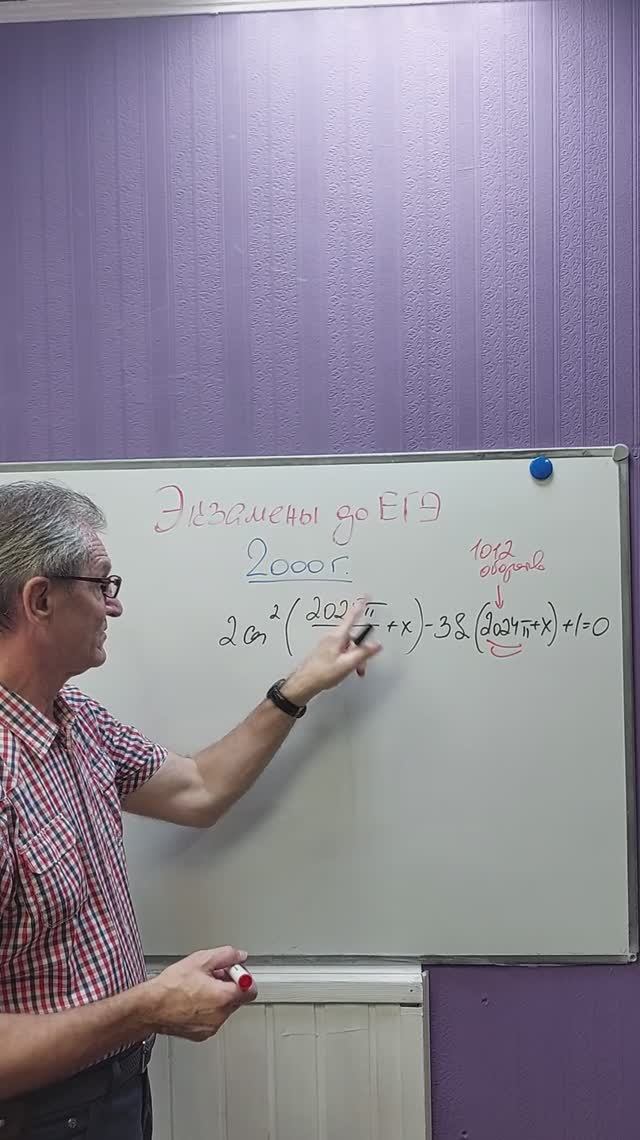 Экзамены до ЕГЭ
2000г.
1012
оборотов
2cos²(202 π + x) - 3S(2024π + x) + 1 = 0